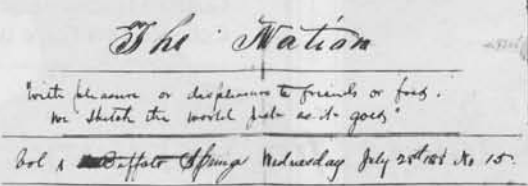 The Nation
"With pleasure or displeasure to friends or foes,
We sketch the world just as it goes"
Vol 1 Buffalo Springs Wednesday July 28th No 15.